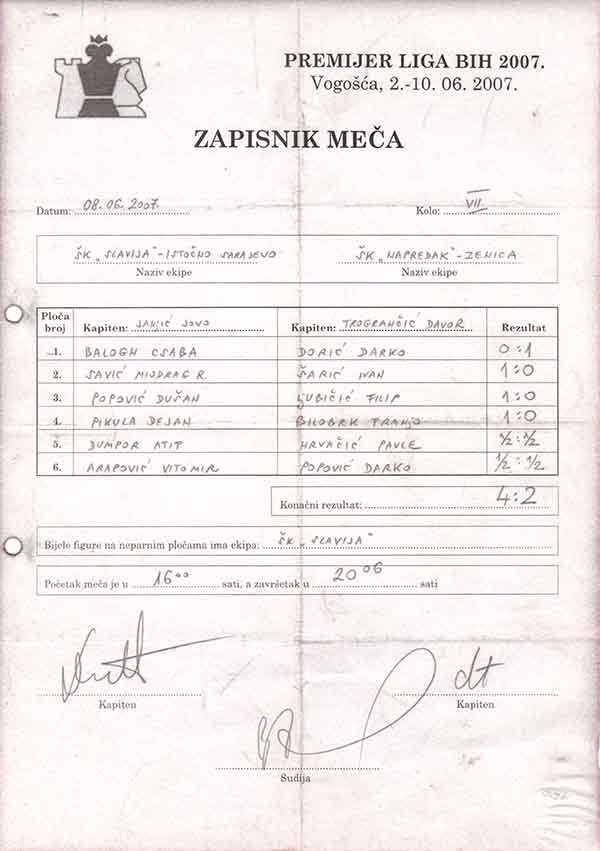 PREMIJER LIGA BIH 2007.
Vogošća, 2.-10. 06. 2007.
ZAPISNIK MEČA
Datum: 08.06.2007. Kolo: VII
ŠK "SLAVIJA"-ISTOČNO SARAJEVO ŠK "NAPREDAK"-ZENICA
Naziv ekipe Naziv ekipe
Ploča broj Kapiten: JANJIĆ JOVO Kapiten: TROGRANČIĆ DAVOR Rezultat
1. BALOGH CSABA DORIĆ DARKO 0:1
2. SAVIĆ MIODRAG R. ŠARIĆ IVAN 1:0
3. POPOVIĆ DUŠAN LJUBIČIĆ FILIP 1:0
4. PIKULA DEJAN BILOBRK FRANJO 1:0
5. DUMPOR ATIF HRVAČIĆ PAVLE ½:½
6. ARAPOVIĆ VITOMIR POPOVIĆ DARKO ½:½
Konačni rezultat: 4:2
Bijele figure na neparnim pločama ima ekipa: ŠK "SLAVIJA"
Početak meča je u 16⁰⁰ sati, a završetak u 20⁰⁶ sati
Kapiten Kapiten
Sudija